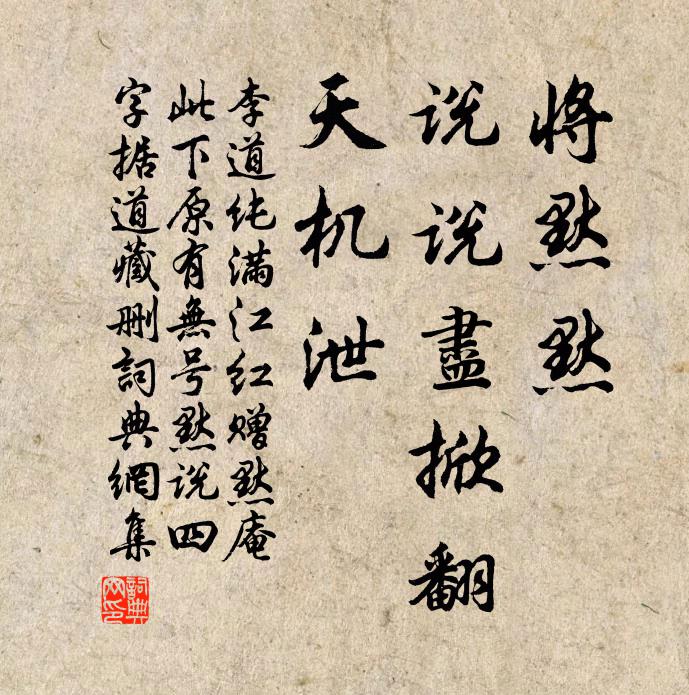 將默默
说说盡掀翻
天机泄
李道纯满江红赠默庵
此下原有無号默说四
字据道藏删詞典網集
詞典网印